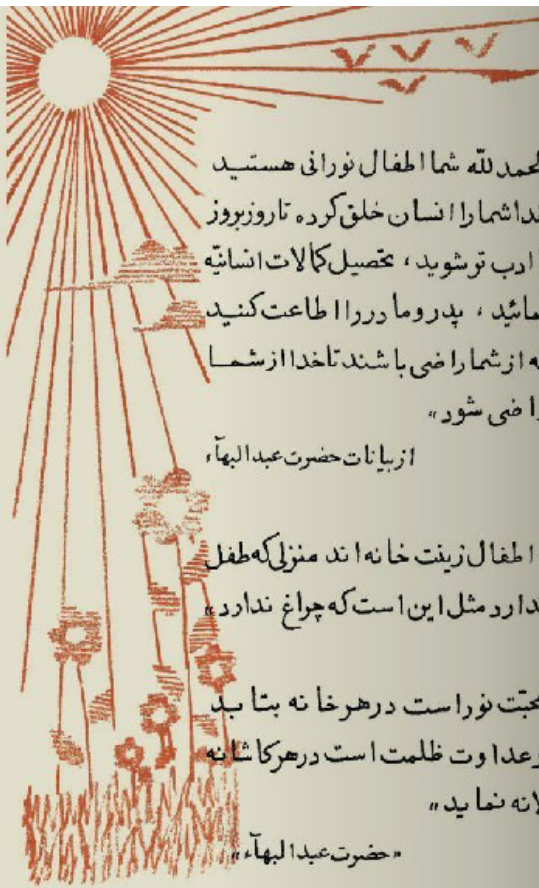 لحمد لله شما اطفال نورانی هستید
دا شما را انسان خلق کرده تا روز بروز
ادب تر شوید ، تحصیل کمالات انسانیّه
مائید ، پدر و مادر را اطاعت کنید
ه از شما راضی باشند تا خدا از شما
راضی شود»
از بیانات حضرت عبدالبهآء
اطفال زینت خانه اند منزلی که طفل
دارد مثل این است که چراغ ندارد»
حبّت نور است در هر خانه بتابد
وعداوت ظلمت است در هر کاشانه
لانه نماید»
«حضرت عبدالبهآء»